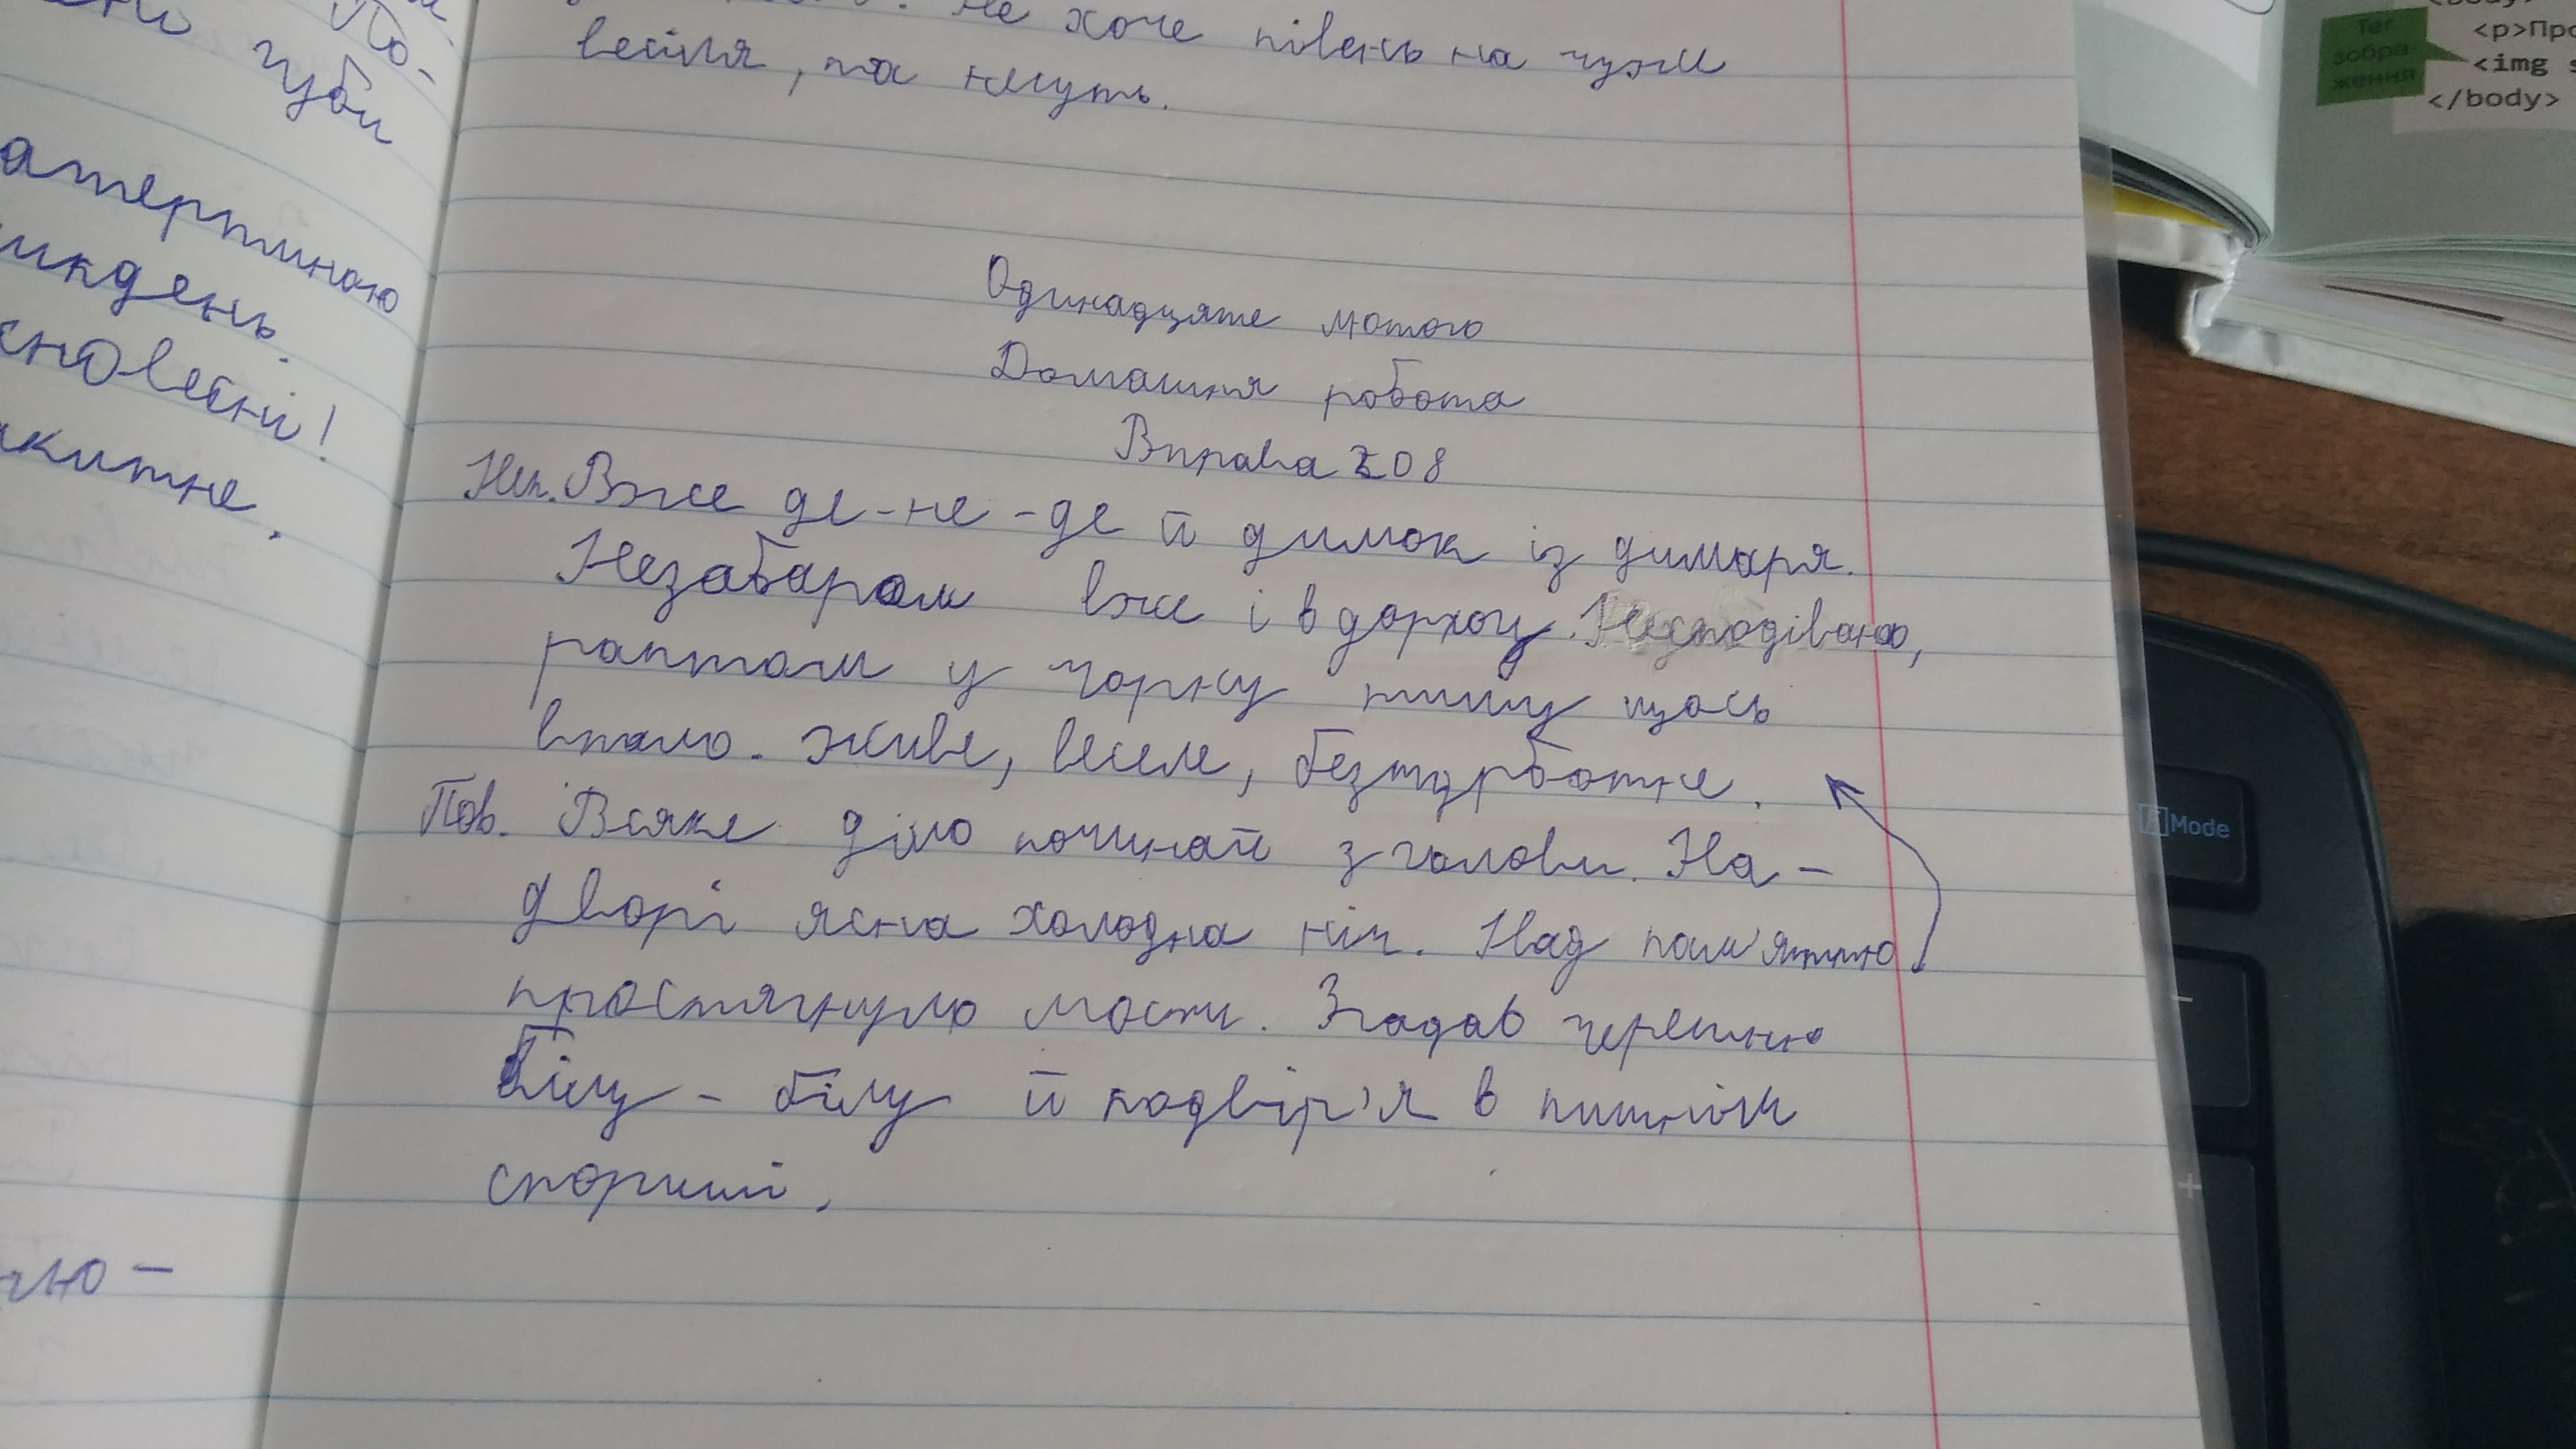 По-
губи
атертиною
икдень.
сновесні!
акитне.
чню -
Не хоче півень на чуже
весілля, та несуть.
Одинадцяте лютого
Домашня робота
Вправа 208
Неп. Вже де-не-де й димок із димаря.
Незабаром вже і в дорхоу. Несподівано,
раптом у чорну тишу щось
впало. Живе, веселе, безтурботне.
Пов. Всяке діло починай з голови. На-
дворі ясна холодна ніч. Над пам'яттю
простягнуло мости. Згадав черешню
білу - білу й подвір'я в пишнім
спориші.
Тег
зобра-
ження
<body>
<p>Про
<img s
</body>
Mode
-
+